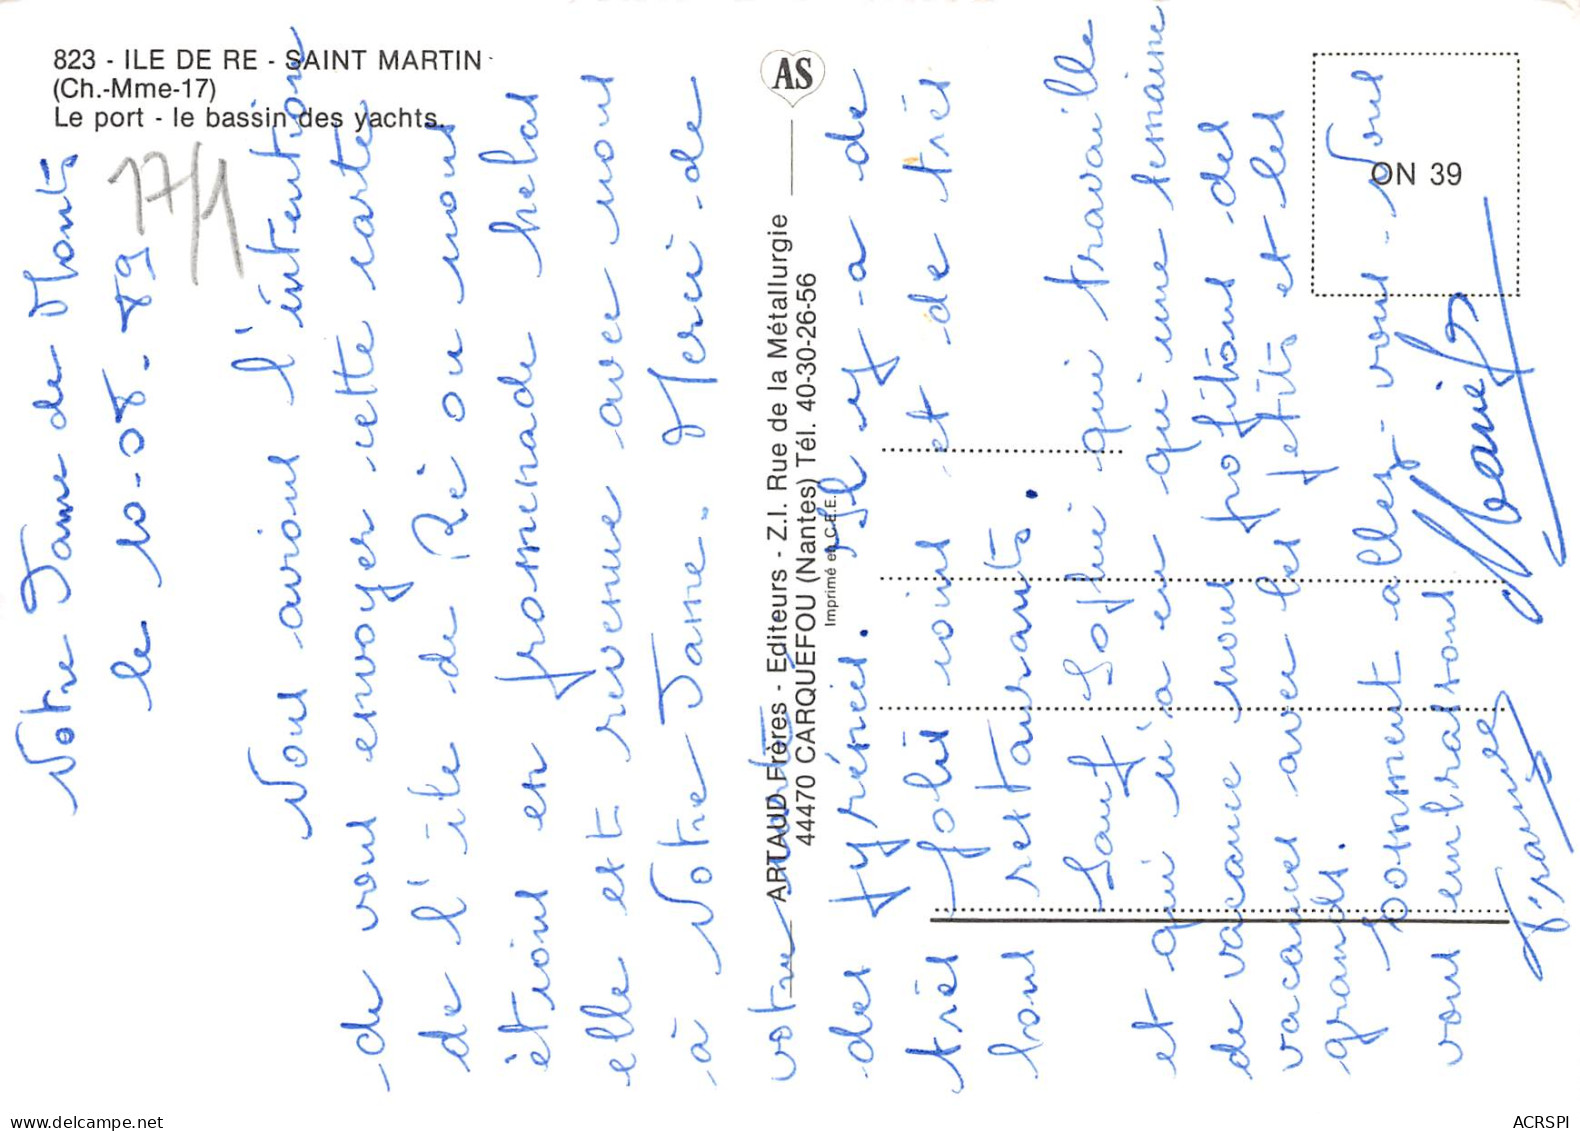 823 - ILE DE RE - SAINT MARTIN
(Ch.-Mme-17)
Le port - le bassin des yachts.
17/1
AS
ARTAUD Frères - Editeurs - Z.I. Rue de la Métallurgie
44470 CARQUEFOU (Nantes) Tél. 40-30-26-56
Imprimé en C.E.E.
ON 39
Notre Dame de Monts
le 10-08-89
Nous avions l'intention
de vous envoyer cette carte
de l'île de Ré ou nous
étions en promenade helas
elle est revenue avec nous
à Notre Dame. Merci de
votre carte
des pyrénées. Il y a de
très jolis coins et de très
bons restaurants.
Sauf Sophie qui travaille
et qui n'a eu qu'une semaine
de vacance nous profitons des
vacances avec les petits et les
grands.
Comment allez-vous - Nous
vous embrassons